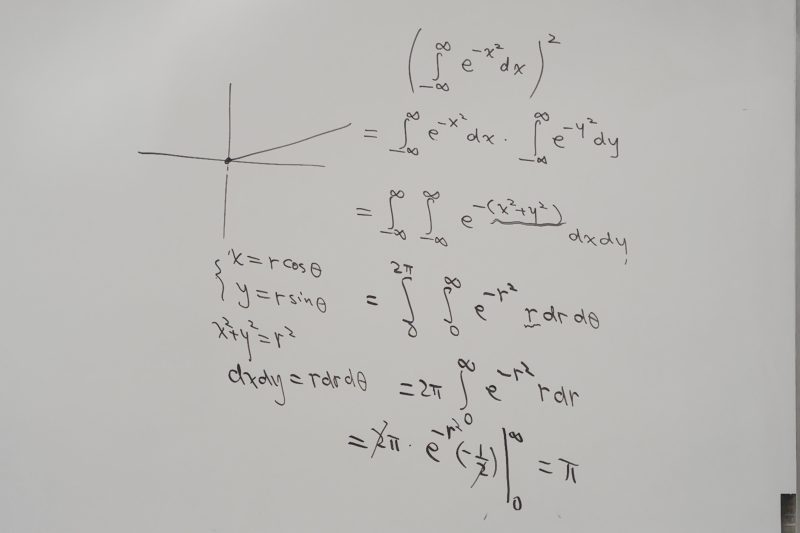 (∫_{-∞}^{∞} e^{-x²} dx)²
= ∫_{-∞}^{∞} e^{-x²} dx · ∫_{-∞}^{∞} e^{-y²} dy
= ∫_{-∞}^{∞} ∫_{-∞}^{∞} e^{-(x²+y²)} dxdy
{ x = r cosθ
y = r sinθ
= ∫_{0}^{2π} ∫_{0}^{∞} e^{-r²} r dr dθ
x²+y² = r²
dxdy = rdrdθ
= 2π ∫_{0}^{∞} e^{-r²} r dr
= 2π · e^{-r²} (-1/2) |_{0}^{∞} = π